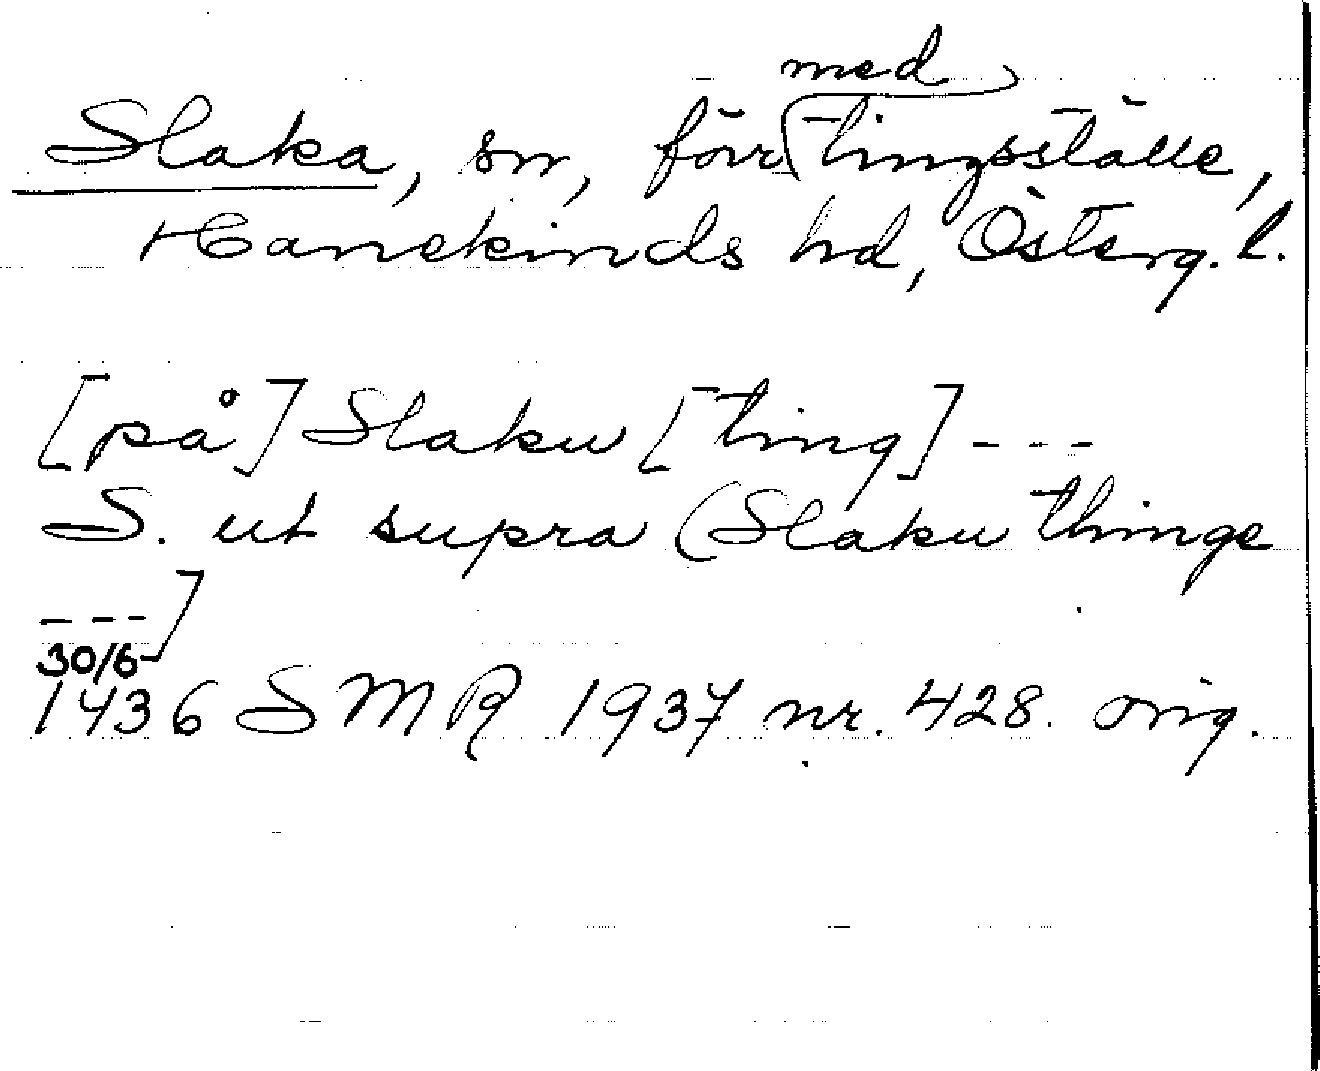 med
Slaka, sn, förr tingsställe,
Hanekinds hd, Österg. l.
[på] Slaku [ting] - - -
S. ut supra (Slaku thinge
- - -]
30/6
1436 SMR 1937 nr. 428. orig.